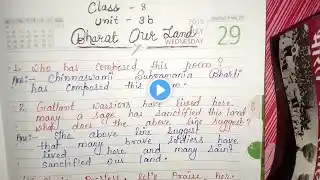 Class - 8
Unit - 3b
Bharat Our Land
2015
WEDNESDAY
29
1. Who has composed this poem?
Ans:- Chinnaswami Subramania Bharti
has composed this poem.
2. Gallant warriors have lived here
many a sage has sanctified this land
what does the above line suggest?
Ans:- The above line suggest
that many brave soldiers have
lived here and many saint
sanctified our land.
let's Praise her.